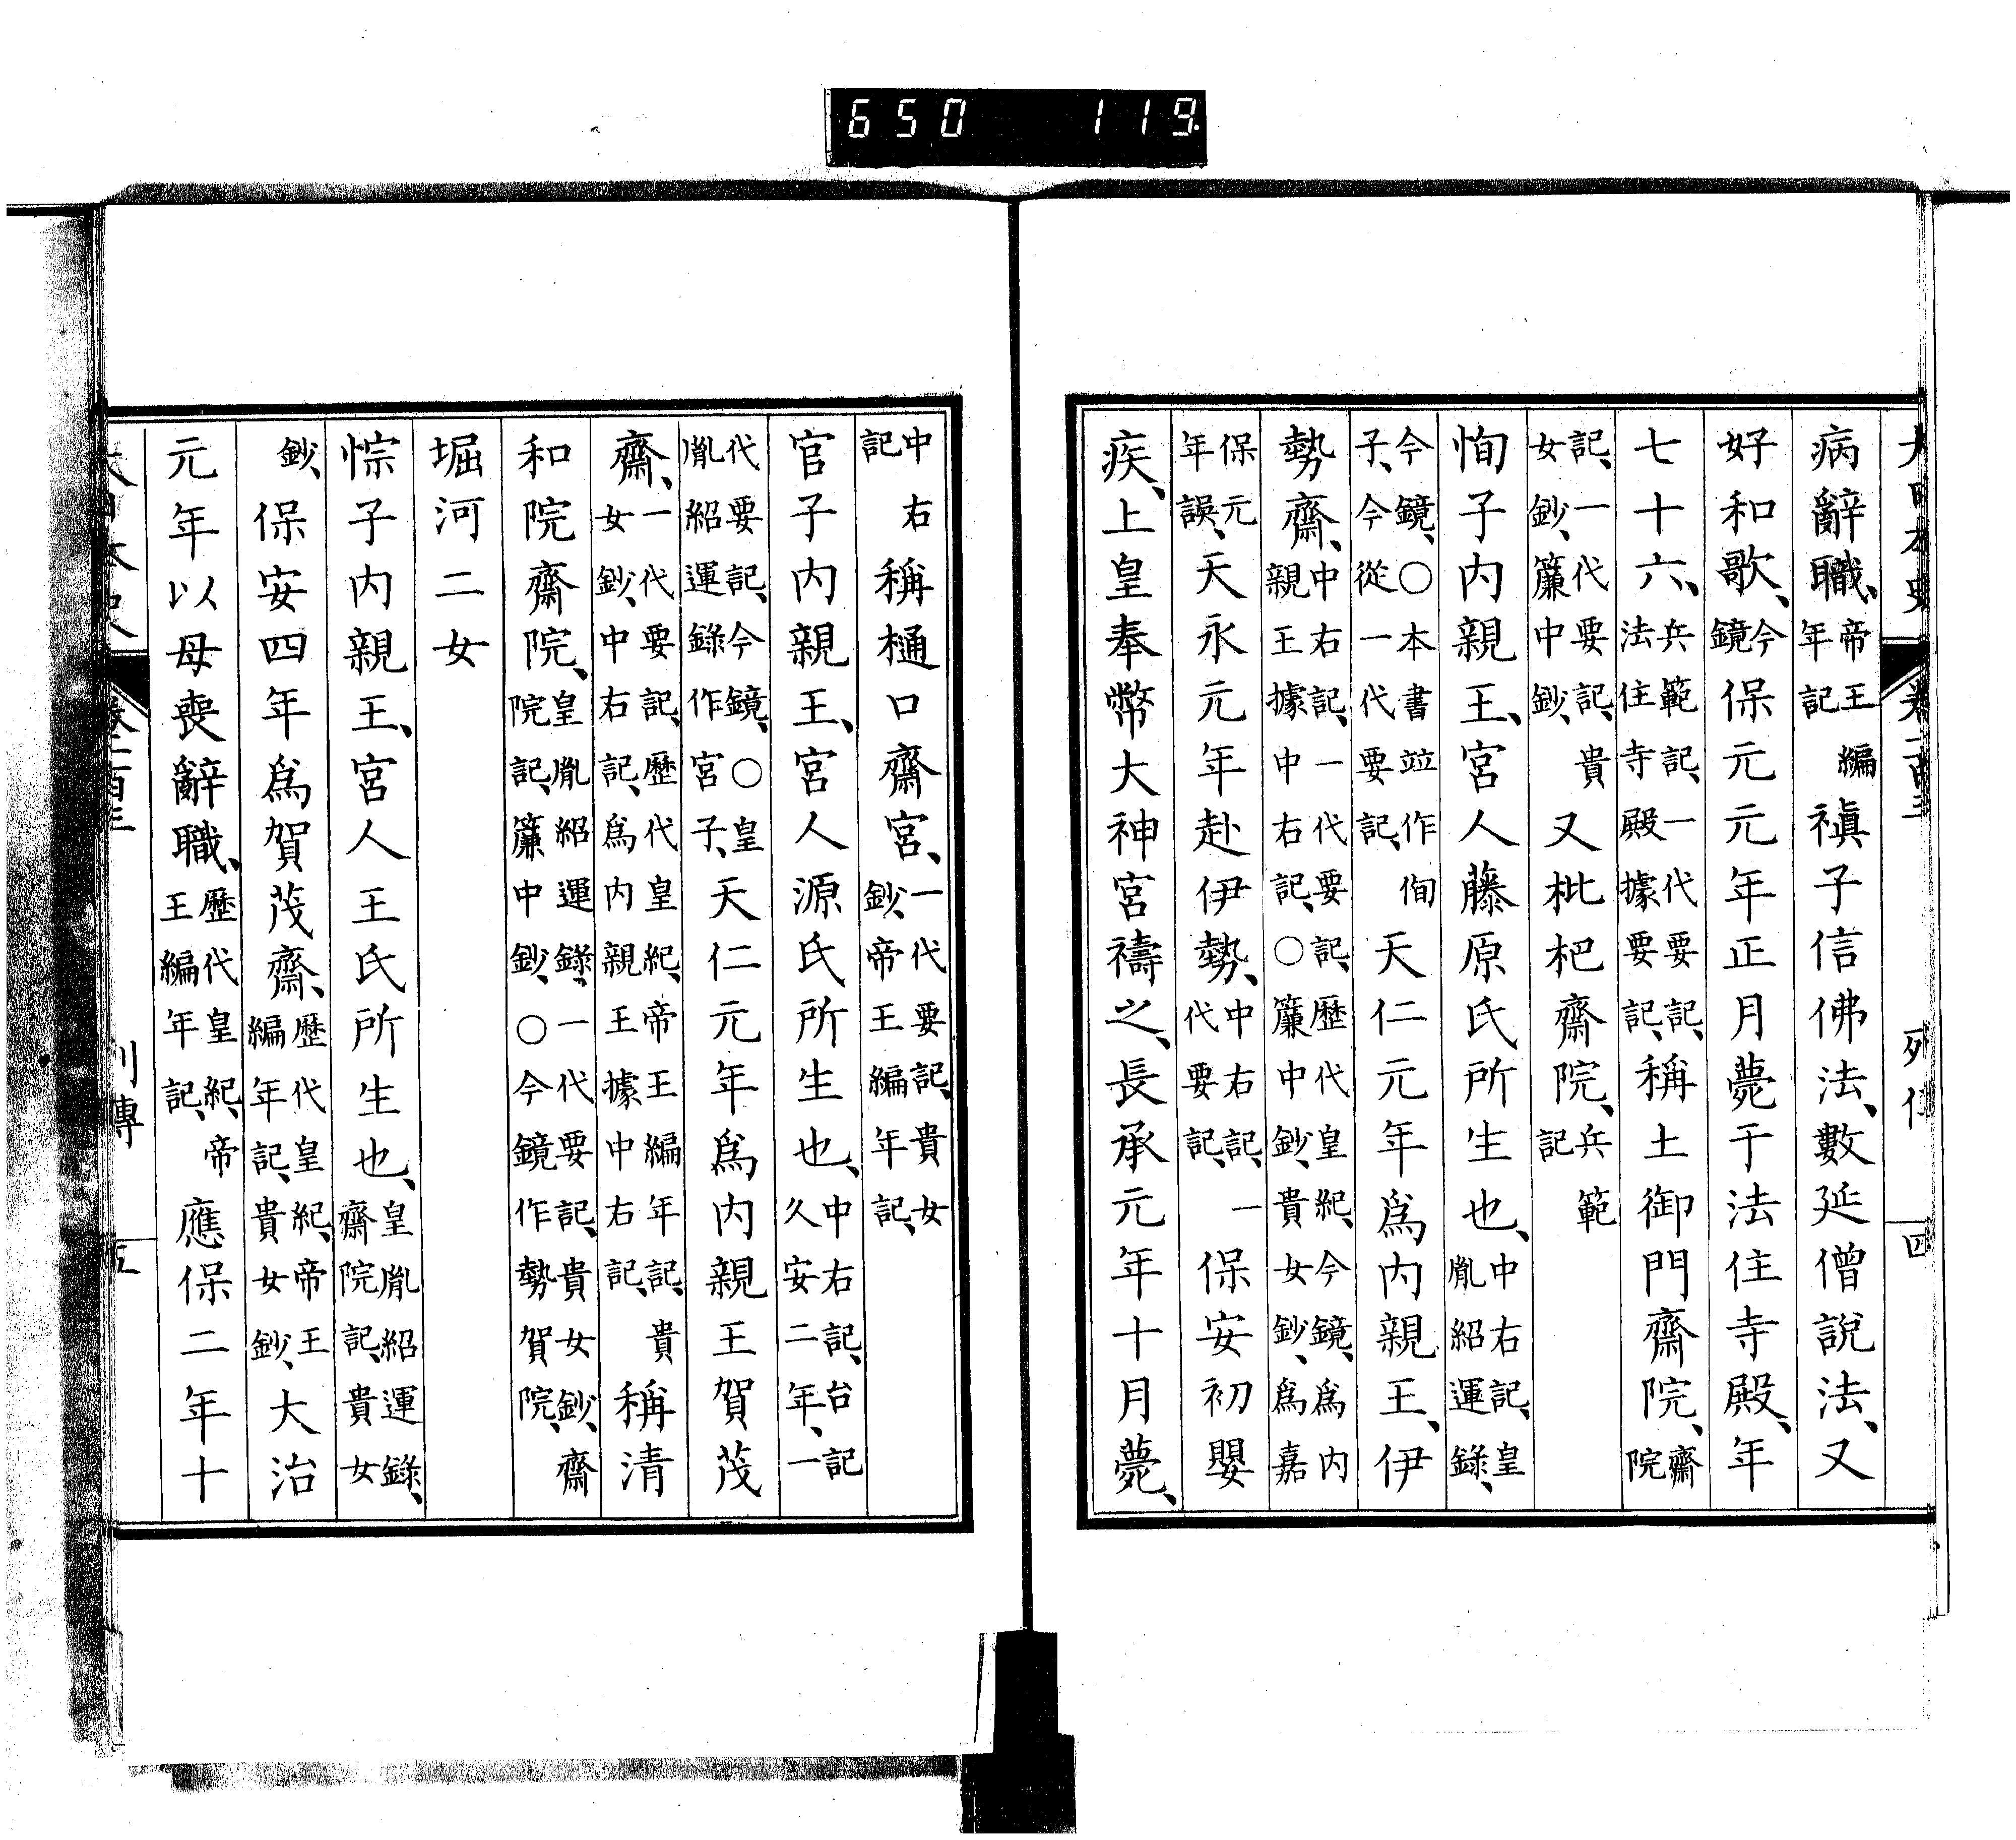 650 119
大日本史 列傳 四
病辭職、帝王編年記禛子信佛法、數延僧說法、又
好和歌、今鏡保元元年正月薨于法住寺殿、年
七十六、兵範記、一代要記、法住寺殿據要記、稱土御門齋院、齋院
記、一代要記、貴女鈔、簾中鈔、又枇杷齋院、兵範記
恂子内親王、宮人藤原氏所生也、中右記、皇胤紹運錄、
今鏡、○本書竝作侚子、今從一代要記、天仁元年爲内親王、伊
勢齋、中右記、一代要記、歷代皇紀、今鏡、爲内親王據中右記、○簾中鈔、貴女鈔、爲嘉
保元年誤、天永元年赴伊勢、中右記、一代要記、保安初嬰
疾、上皇奉幣大神宮禱之、長承元年十月薨、
中右記稱樋口齋宮、一代要記、貴女鈔、帝王編年記、
官子内親王、宮人源氏所生也、中右記、台記久安二年、一
代要記、今鏡、○皇胤紹運錄作宮子、天仁元年爲内親王賀茂
齋、一代要記、歷代皇紀、帝王編年記、貴女鈔、中右記、爲内親王據中右記、稱清
和院齋院、皇胤紹運錄、一代要記、貴女鈔、齋院記、簾中鈔、○今鏡作勢賀院、
堀河二女
悰子内親王、宮人王氏所生也、皇胤紹運錄、齋院記、貴女
鈔、保安四年爲賀茂齋、歷代皇紀、帝王編年記、貴女鈔、大治
元年以母喪辭職、歷代皇紀、帝王編年記、應保二年十
大日本史 列傳 五